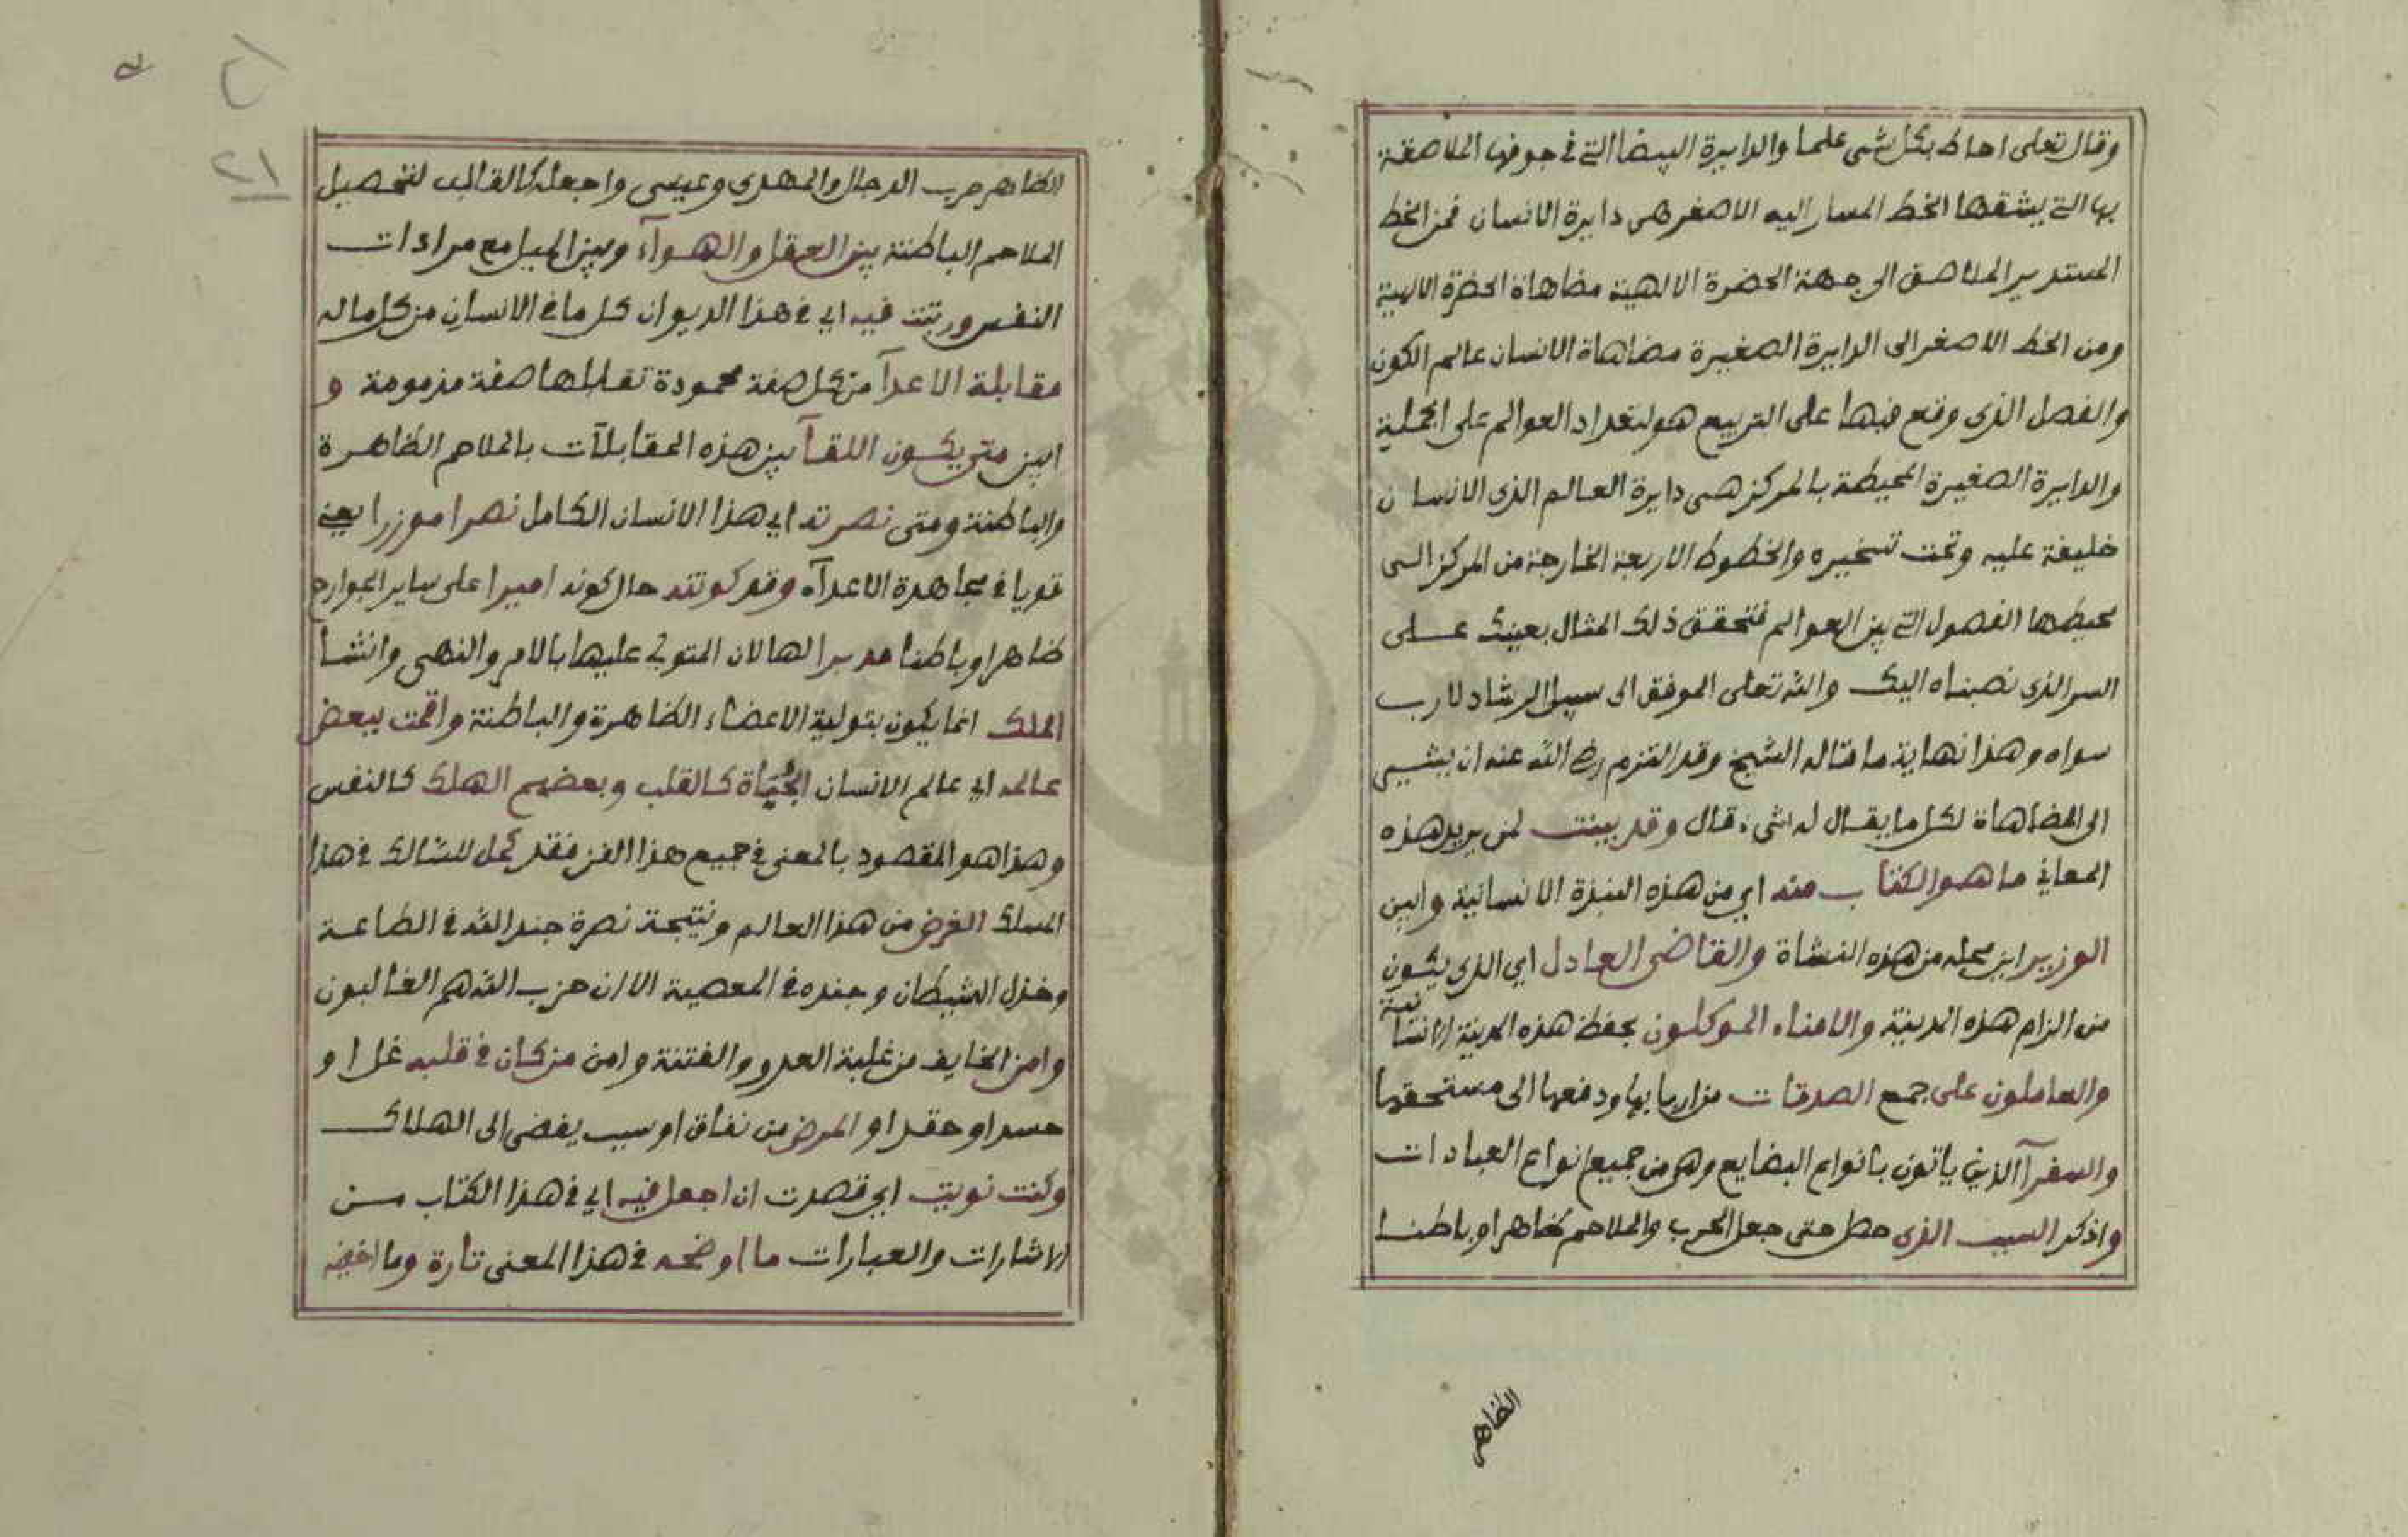 وقال تعلى احاط بكل شى علما والدايرة البيضا التى فى جوفها الملاصقة
بها التى يشقها الخط المسار اليه الاصغر هى دايرة الانسان فمن الخط
المستدير الملاصق الى جهة الحضرة الالهية مضاهاة الحضرة الالهية
ومن الخط الاصغر الى الدايرة الصغيرة مضاهاة الانسان عالم الكون
والفصل الذى وقع فيها على التربيع هو لتعداد العوالم على الجملية
والدايرة الصغيرة المحيطة بالمركز هى دايرة العالم الذى الانسان
خليفة عليه وتحت تسخيره والخطوط الاربعة الخارجة من المركز الى
محيطها الفصول التى بين العوالم فتحقق ذلك المثال بعينك على
السر الذى نصبناه اليك والله تعلى الموفق الى سبيل الرشاد لا رب
سواه وهذا نهاية ما قاله الشيخ وقد التزم رضى الله عنه ان يشير
الى المضاهاة لكل ما يقال له شىء قال وقد بينت لمن يريد هذه
المعاني ما هو الكتاب منه اي من هذه النبذة الانسانية واين
الوزير اين محله من هذه النشاة والقاضى العادل اي الذى يكون
من الزام هذه المدينة والامناء الموكلون بحفظ هذه المدينة الانسانية
والعاملون على جمع الصدقات من اربابها ودفعها الى مستحقها
والسفرآ الذين ياتون بانواع البضايع وهى من جميع انواع العبادات
واذكر السبب الذى حصل حتى جعل الحرب والملاحم ظاهرا وباطنا
الظاهر
٢١
الظاهر حرب الدجال والمهدى وعيسى واجعله كالقالب لتحصيل
الملاحم الباطنة بين العقل والهوآء وبين الميل مع مرادات
النفس ورتبت فيه اي فى هذا الديوان كل ما فى الانسان من كل ماله
مقابلة الاعدآ من كل صفة محمودة تقابلها صفة مذمومة و
ابين متى يكون اللقآ بين هذه المقابلآت بالملاحم الظاهرة
والباطنة ومتى نصرته اي هذا الانسان الكامل نصرا موزرا يعنى
قويا فى مجاهدة الاعدآء وقد كونته حال كونه اميرا على ساير الجوارح
ظاهرا وباطنا مدبرا لها لان المتولى عليها بالامر والنهى وانشا
الملك انما يكون بتولية الاعضاء الظاهرة والباطنة واقمت ببعض
عالمه اي عالم الانسان الحُيَاة كالقلب وبعضهم الهلك كالنفس
وهذا هو المقصود بالمعنى فى جميع هذا الفن فقد كمل للسالك فى هذا
المسلك الغرض من هذا العالم ونتيجة نصرة جند الله فى الطاعة
وخذل الشيطان وجنده فى المعصية الا ان حزب الله هم الغالبون
وامن الخايف من غلبة العدو والفتنة وامن من كان فى قلبه غل او
حسد او حقد او المرض من نفاق او سبب يفضى الى الهلاك
وكنت نويت اي قصدت ان اجعل فيه اي فى هذا الكتاب من
الاشارات والعبارات ما اوضحه فى هذا المعنى تارة وما اخفيه